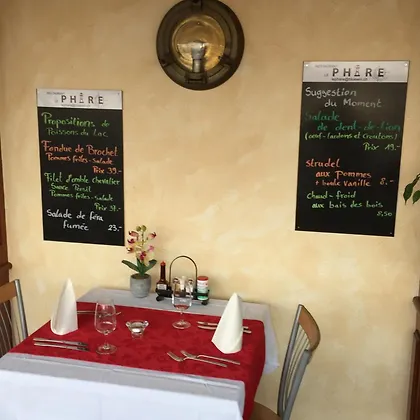 PHARE
Propositions de
Poissons du Lac
Fondue de Brochet
Pommes frites - salade
Prix 39.-
Filet d'omble chevalier
Sauce Persil
Pommes frites - salade
Prix 31.-
Salade de féra
fumée 23.-
PHARE
Suggestion
du Moment
Salade
de dent-de-lion
(oeuf-lardons et croutons)
Prix 19.-
Strudel
aux pommes
+ boule Vanille 8.-
chaud-froid
aux baies des bois
8,50